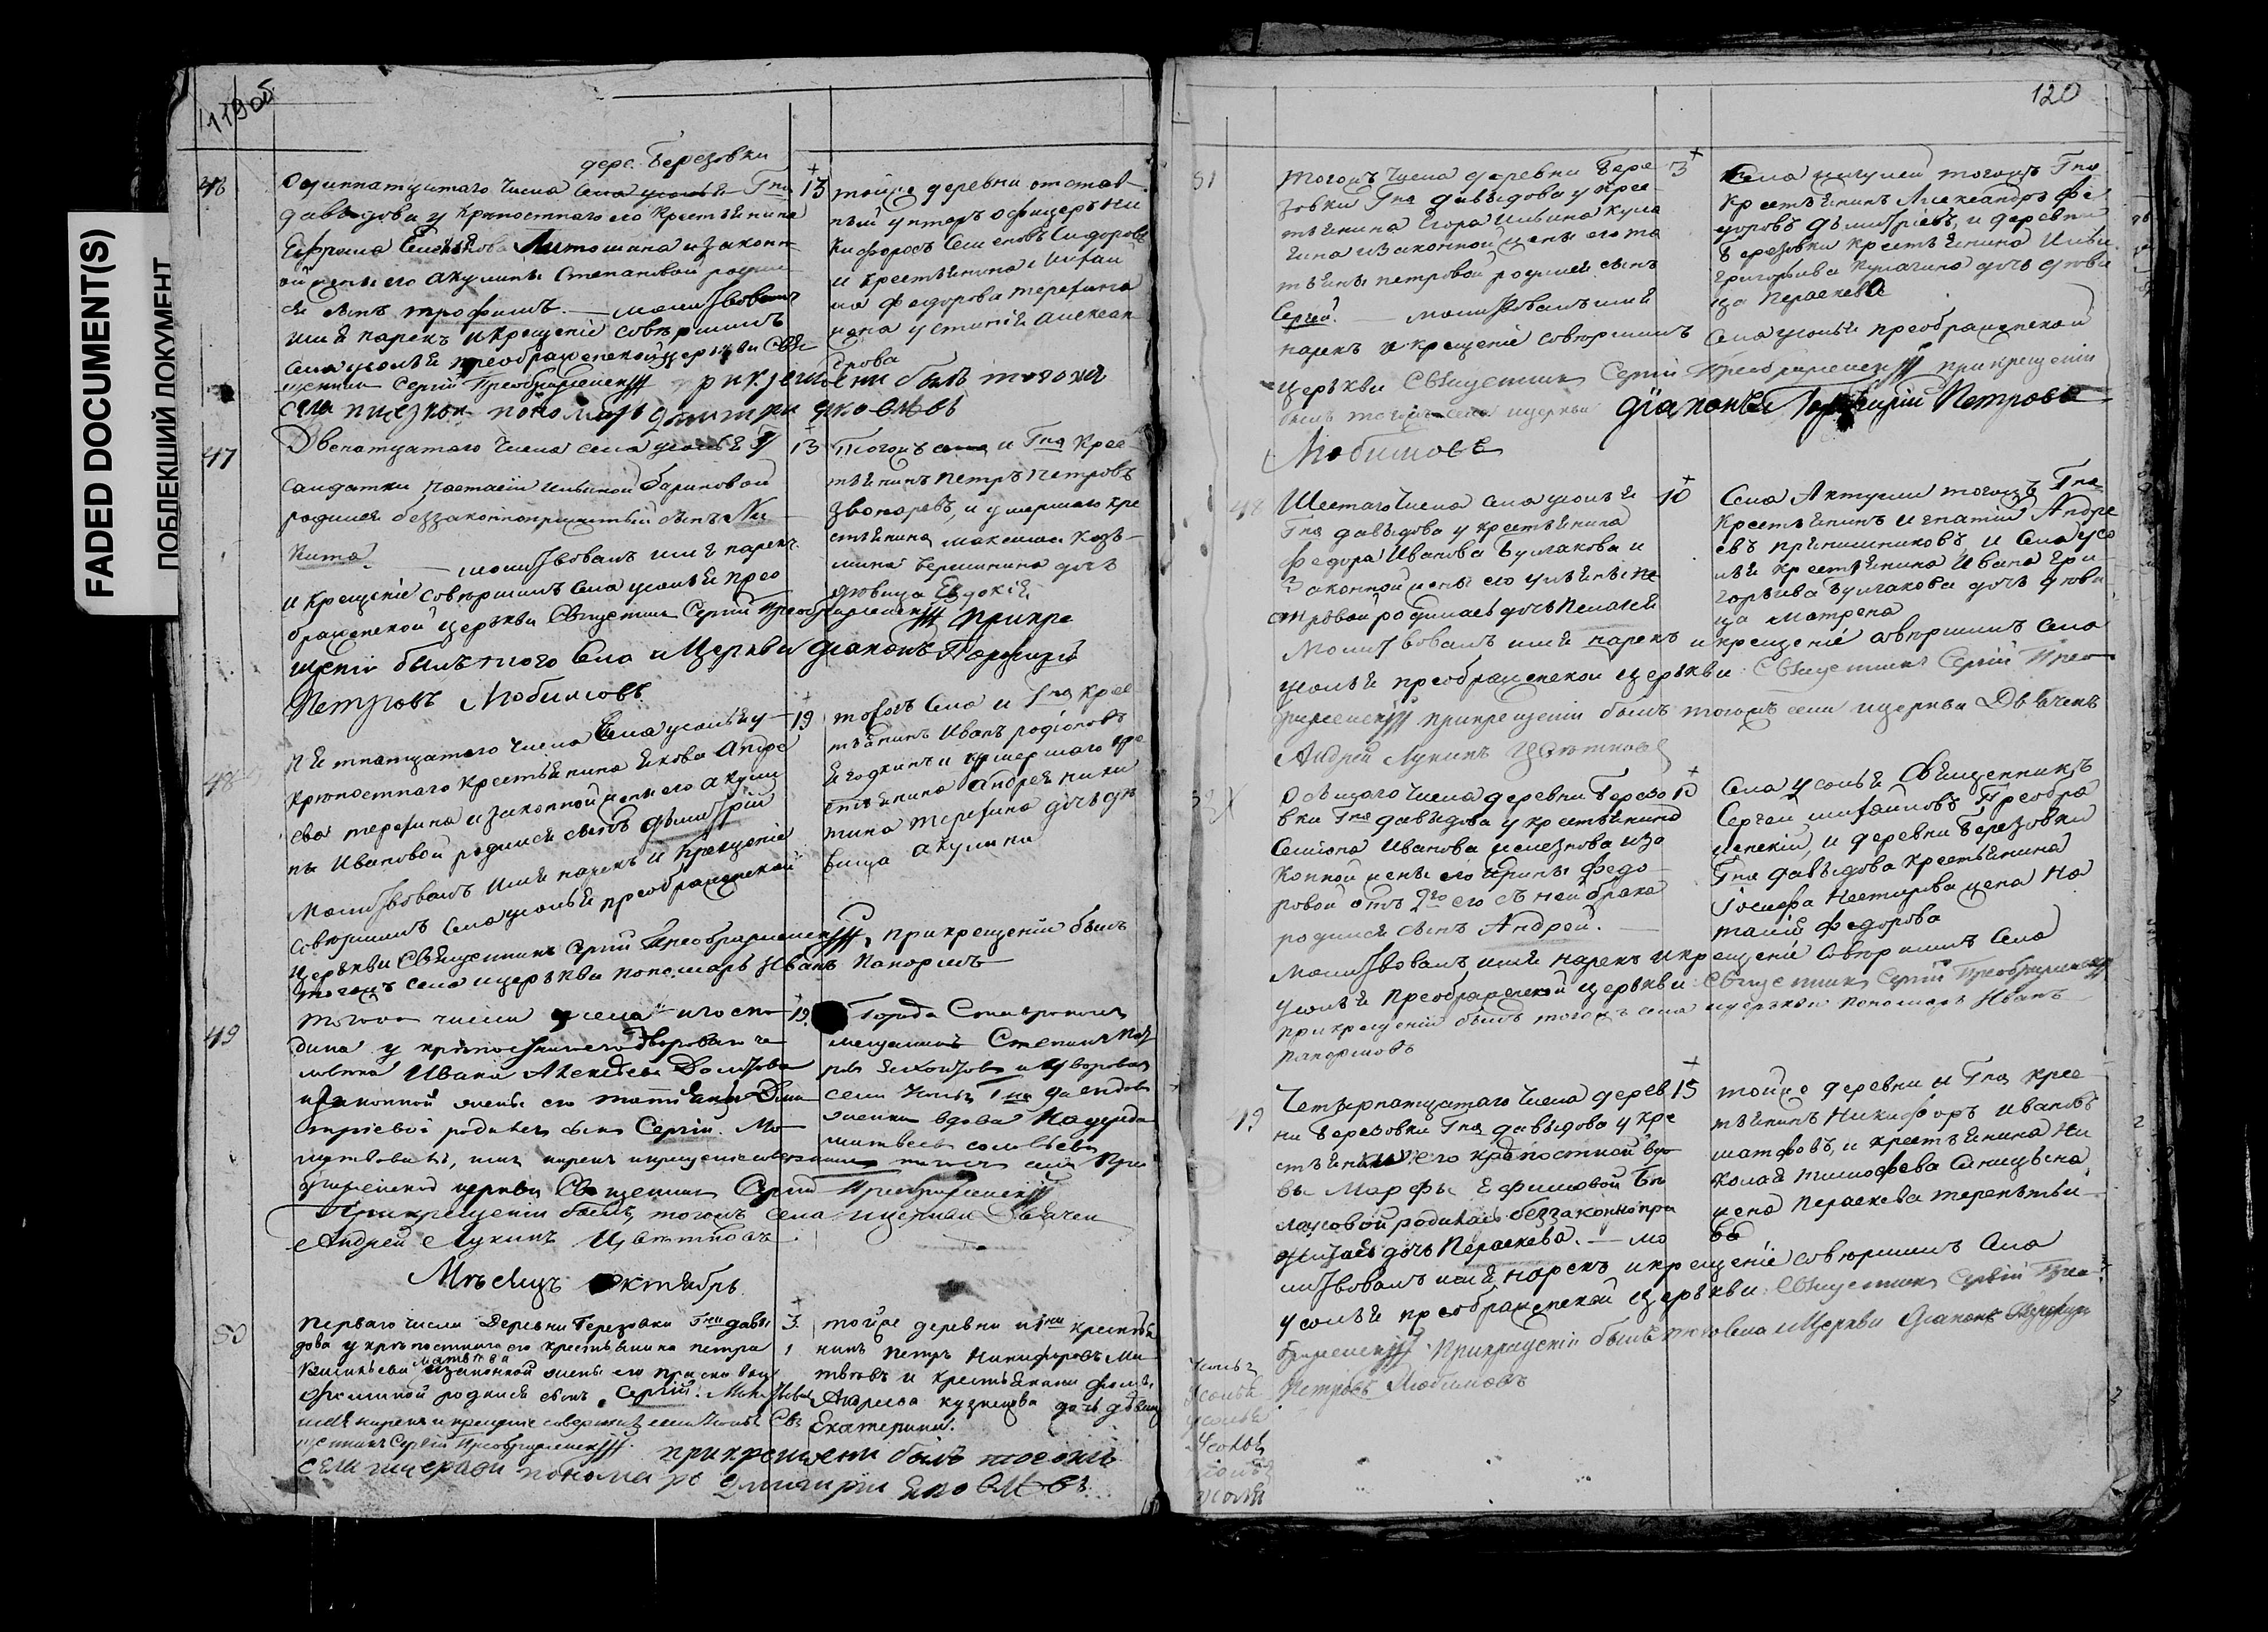 FADED DOCUMENT(S)
ПОБЛЕКШИЙ ДОКУМЕНТ
119 об
дере. Березовки
46
Одиннатцатаго числа села усолья Гна
давыдова у Крѣпостнаго его Крестьянина
Ефрема и законн
ой жены его Акулины Степановой родил
ся сынъ трофимъ. — молитвовалъ
имя нарекъ и крещеніе совершилъ
села усолья преображенской церкви Свя
щенникъ Сергій Преображенскій при крещени былъ тогожъ
села пономарь дмитри яковлевъ
13
тойже деревни отстав
ный унтеръ офицеръ Ни
кифоръ Семеновъ Сидоровъ
и крестьянина Михаи
ла федорова терехина
жена устинія алексан
дрова
47
Двенатцатаго числа села усолья у
салдатки настасіи ильиной бариновой
родился беззаконноприжитый сынъ Ни
кита. — молитвовалъ имя нарекъ
и крещеніе совершилъ села усолья прео
браженской церкви Священникъ Сергій Преображенскій при кре
щеніи былъ того Села и Церкви діаконъ Порфирій
Петровъ Любимовъ
13
Тогожъ села и Гна Крес
тьянинъ Петръ Петровъ
звонаревъ, и умершаго кре
стьянина максима Козь
мина вершинина дочь
девица Евдокія
48
Пятнатцатаго числа Села усолья у
крѣпостнаго крестьянина якова Андре
ева терехина и законной жены его акули
ны Ивановой родился сынъ дмитрій
молитвовалъ имя нарекъ и крещеніе
совершилъ села усолья преображенской
церкви Священникъ Сергій Преображенскій, при крещеніи былъ
тогожъ села и церкви пономарь Иванъ Панормовъ
19
тогожъ села и Гна крес
тьянинъ Иванъ родіоновъ
ягодкинъ и умершаго кре
стьянина андрея ники
тина терехина дочь де
вица акулина
49
тогожъ числа села и госпо
дина у крѣпостнаго его двороваго че
ловѣка Ивана Алексѣева
и законной жены его татіаны Дми
тріевой родился сынъ Сергій. Мо
литвовалъ, имя нарекъ и крещеніе совершилъ тогожъ села Прео
браженской церкви Священникъ Сергій Преображенскій
При крещеніи былъ, тогожъ села и церкви Дьячекъ
Андрей Лукинъ Цвѣтковъ.
19
Города Ставрополя
мещанинъ Степанъ Пет
ровъ и дворовая
села Усолья Гна Давыдова
женка вдова Надежда
матвеева соловьева
Мѣсяцъ октябрь
50
Перваго числа Деревни Березовки Гна давы
дова у крѣпостнаго его крестьянина петра
Васильева матвѣева и законной жены его прасковьи
родился сынъ Сергій. Молитвовалъ
имя нарекъ и крещеніе совершилъ села Усолья Свя
щенникъ Сергій Преображенскій. при крещени былъ тогожъ
села и церкви пономарь дмитри яковлевъ
3
тойже деревни и Гна крестья
нинъ Петръ Никифоровъ Ма
твѣевъ и крестьянина
Андреева кузнецова дочь дѣвица
Екатерина.
120
51
Тогожъ числа деревни Бере
зовки Гна давыдова у крес
тьянина Егора Ильина Кула
гина и законной жены его та
тьяны петровой родился сынъ
Сергей. — молитвовалъ имя
нарекъ и крещеніе совершилъ села усолья преображенской
церкви Священникъ Сергій Преображенскій при крещеніи
былъ тогожъ села и церкви діаконъ Порфирій Петровъ
Любимовъ
3
Села тогожъ Гна
Крестьянинъ Александръ Фе
доровъ дьмитріевъ, и деревни
Березовки крестьянина Ильи
григорьева Кулагина дочь деви
ца Параскева
48
Шестаго числа села усолья
Гна давыдова у крестьянина
федора Иванова Булгакова и
законной жены его ульяны пе
тровой родилась дочь Пелагея
Молитвовалъ имя нарекъ и крещеніе совершилъ села
усолья преображенской церкви Священникъ Сергій Прео
браженскій при крещеніи былъ тогожъ села и церкви Дьячекъ
Андрей Лукинъ Цвѣтковъ
10
Села Актуши тогожъ Гна
Крестьянинъ игнатій Андре
евъ и Села усо
лья крестьянина Ивана Гри
горьева Булгакова дочь деви
ца Матрена
52
Осьмаго числа деревни Березо
вки Гна давыдова у крестьянина
Семіона Иванова и зa
конной жены его Ирины федо
ровой отъ 2го его съ ней брака
родился сынъ Андрей. —
молитвовалъ имя нарекъ и крещеніе совершилъ села
усолья преображенской церкви Священникъ Сергій Преображенскій
при крещеніи былъ тогожъ села и церкви пономарь Иванъ
Панормовъ
12
Села усолья Священникъ
Сергей михайловъ Преобра
женскій, и деревни Березовки
Гна давыдова Крестьянина
Іосифа Нестерова жена На
талія федорова
49
Четырнатцатаго числа дерев
ни Березовки Гна давыдова у кре
стьянина его крѣпостной вдо
вы Марфы Ефимовой
родилась беззаконнопри
житая дочь Параскева. — мо
литвовалъ имя нарекъ и крещеніе совершилъ села
усолья преображенской церкви Священникъ Сергій Прео
браженскій При крещеніи былъ того Села и Церкви Діаконъ Порфирій
Петровъ Любимовъ
15
тойже деревни и Гна крес
тьянинъ Никифоръ Ивановъ
матфѣевъ, и крестьянина Ни
колая тимофеева Синицына
жена Параскева терентье
ва
Усолья
Усолья
усолья
Усолья
усолья
усолья